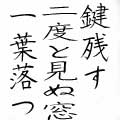 鍵残す
二度と見ぬ窓
一葉落つ